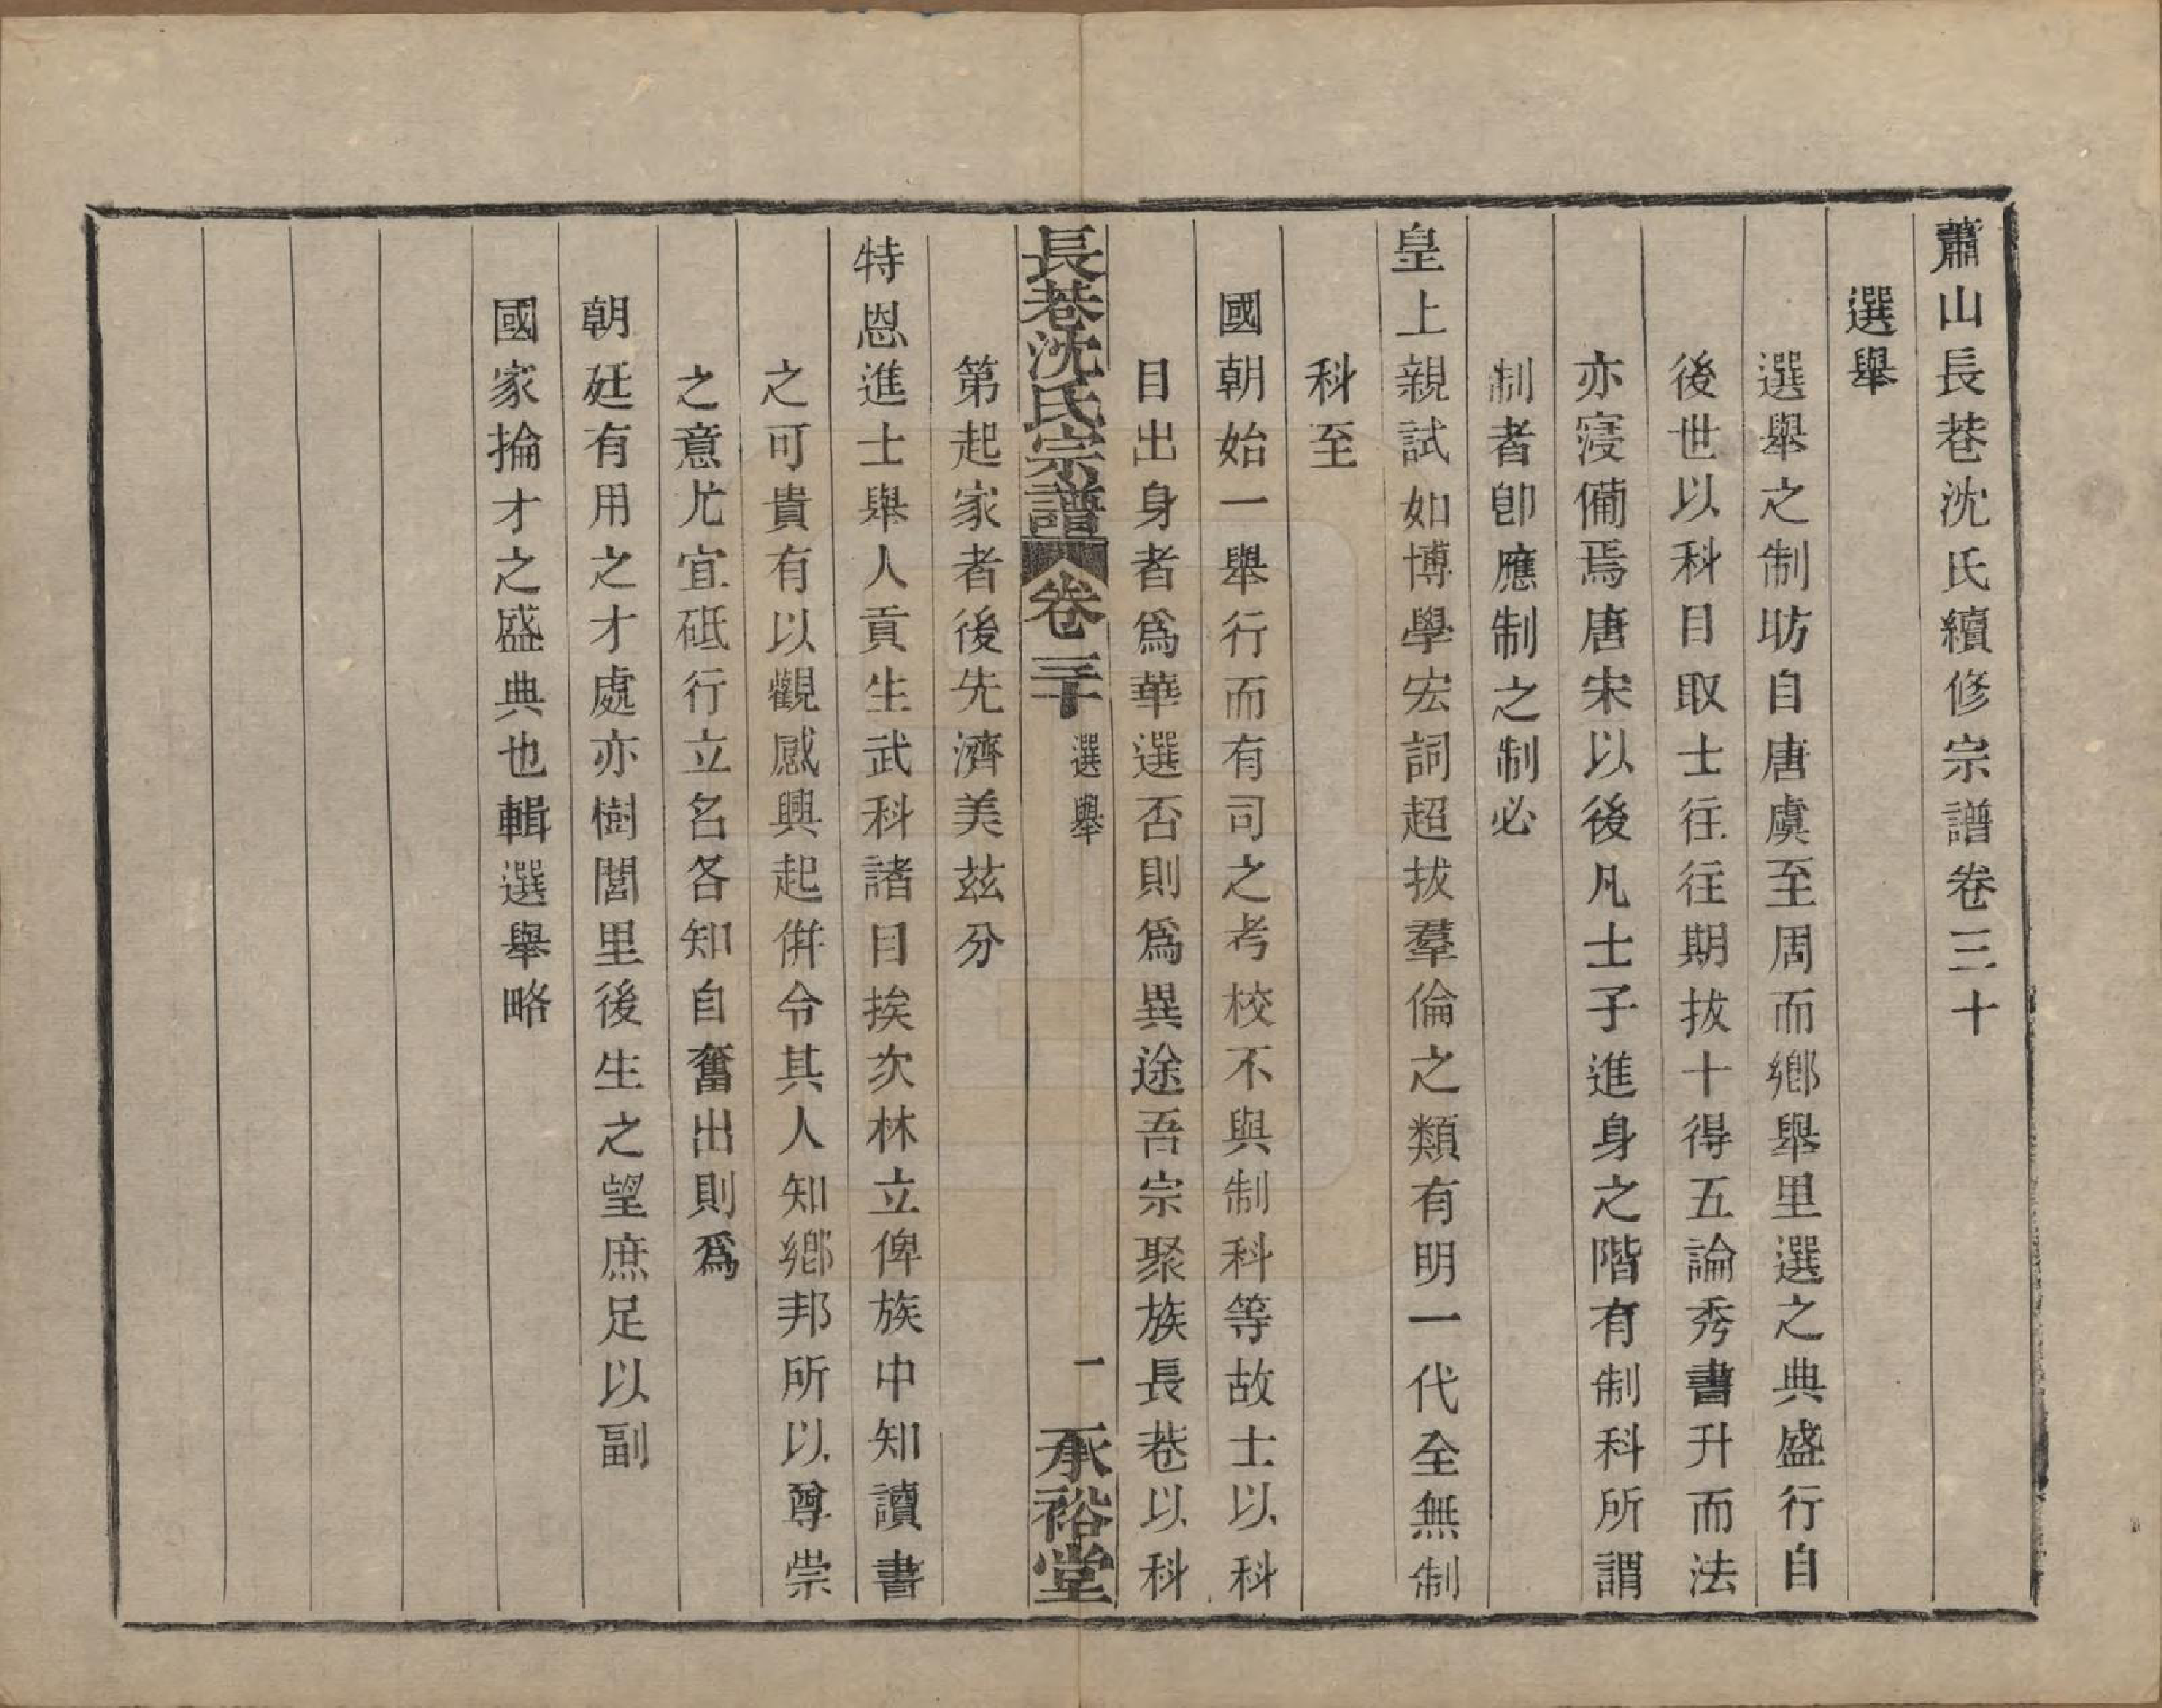 蕭山長巷沈氏續修宗譜卷三十
選舉
選舉之制昉自唐虞至周而鄉舉里選之典盛行自
後世以科目取士往往期拔十得五論秀書升而法
亦寖備焉唐宋以後凡士子進身之階有制科所謂
制者卽應制之制必
皇上親試如博學宏詞超拔羣倫之類有明一代全無制
科至
國朝始一舉行而有司之考校不與制科等故士以科
目出身者爲華選否則爲異途吾宗聚族長巷以科
長巷沈氏宗譜 卷三十 選舉 一 承裕堂
第起家者後先濟美茲分
特恩進士舉人貢生武科諸目挨次林立俾族中知讀書
之可貴有以觀感興起倂令其人知鄉邦所以尊崇
之意尤宜砥行立名各知自奮出則爲
朝廷有用之才處亦樹閭里後生之望庶足以副
國家掄才之盛典也輯選舉略